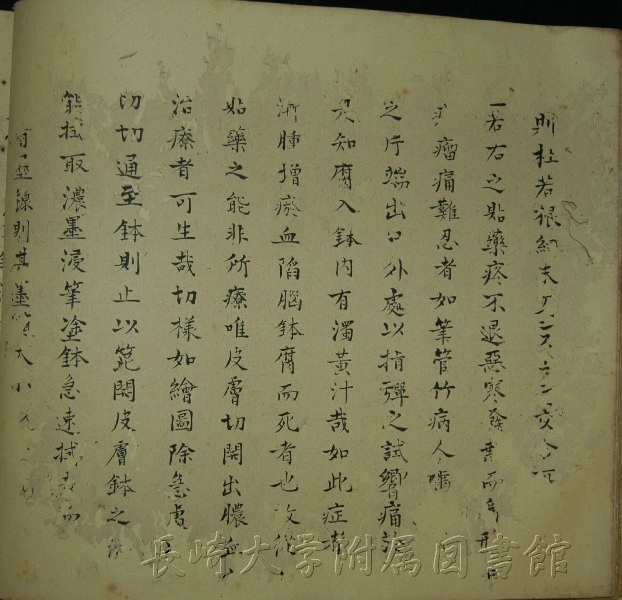 則杜若根細末
一若右之貼藥疼不退惡寒發 而 形
瘤痛難忍者如筆管竹病人嚅
之片端出口外處以指彈之試響痛
是知腐入鉢内有濁黄汁哉如此症者
漸腫增瘀血陷腦鉢腐而死者也故
貼藥之能非所療唯皮膚切開出膿血
治療者可生哉切樣如繪圖除急處
切切通至鉢則止以箆開皮膚鉢之
能拭取濃墨浸筆塗鉢急速拭 而
線則其墨 大小
長崎大学附属図書館